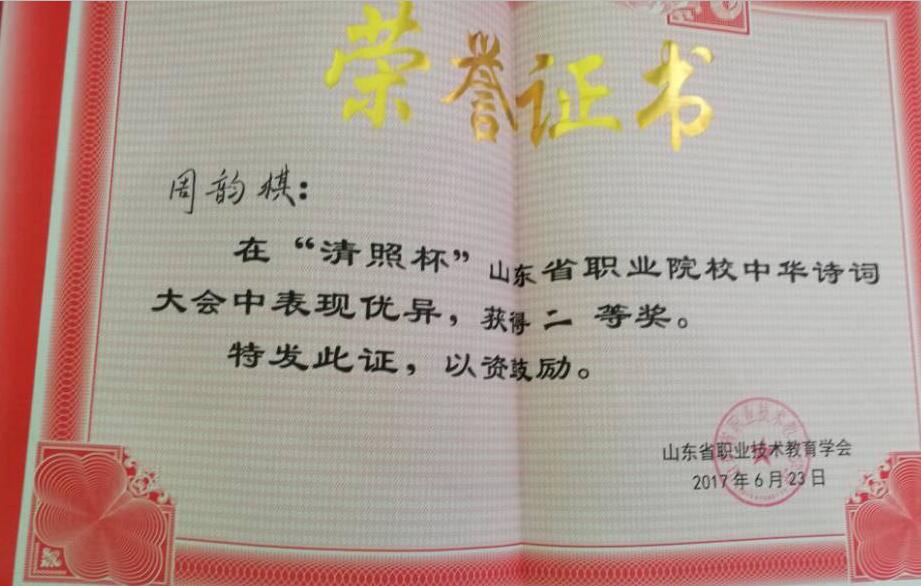 荣誉证书
周韵棋：
在“清照杯”山东省职业院校中华诗词
大会中表现优异，获得 二 等奖。
特发此证，以资鼓励。
山东省职业技术教育学会
2017年6月23日